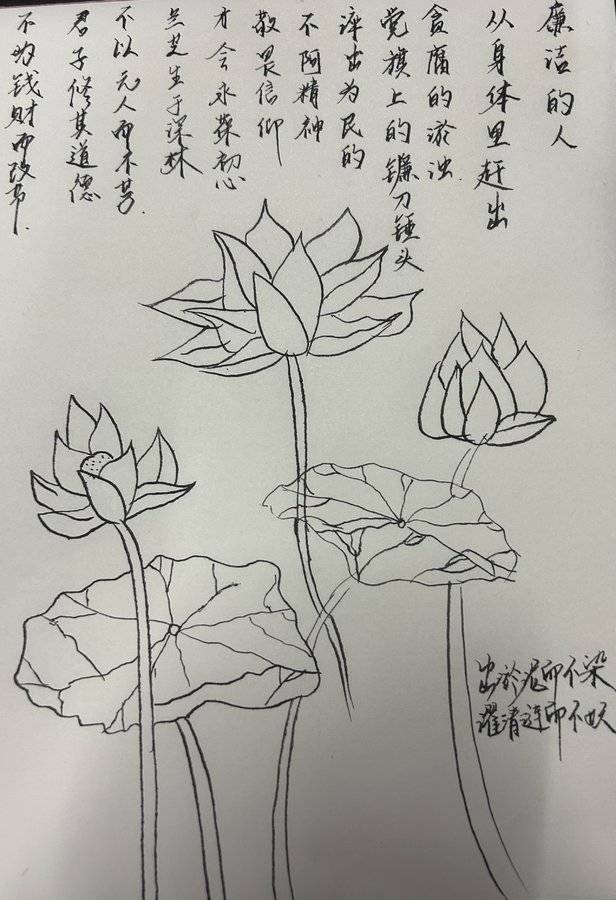 廉洁的人
从身体里赶出
贪腐的淤浊.
党旗上的镰刀锤头
淬出为民的
不阿精神
敬畏信仰
才会永葆初心
兰芝生于深林
不以无人而不芳.
君子修其道德
不为钱财而改节.
出淤泥而不染
濯清涟而不妖